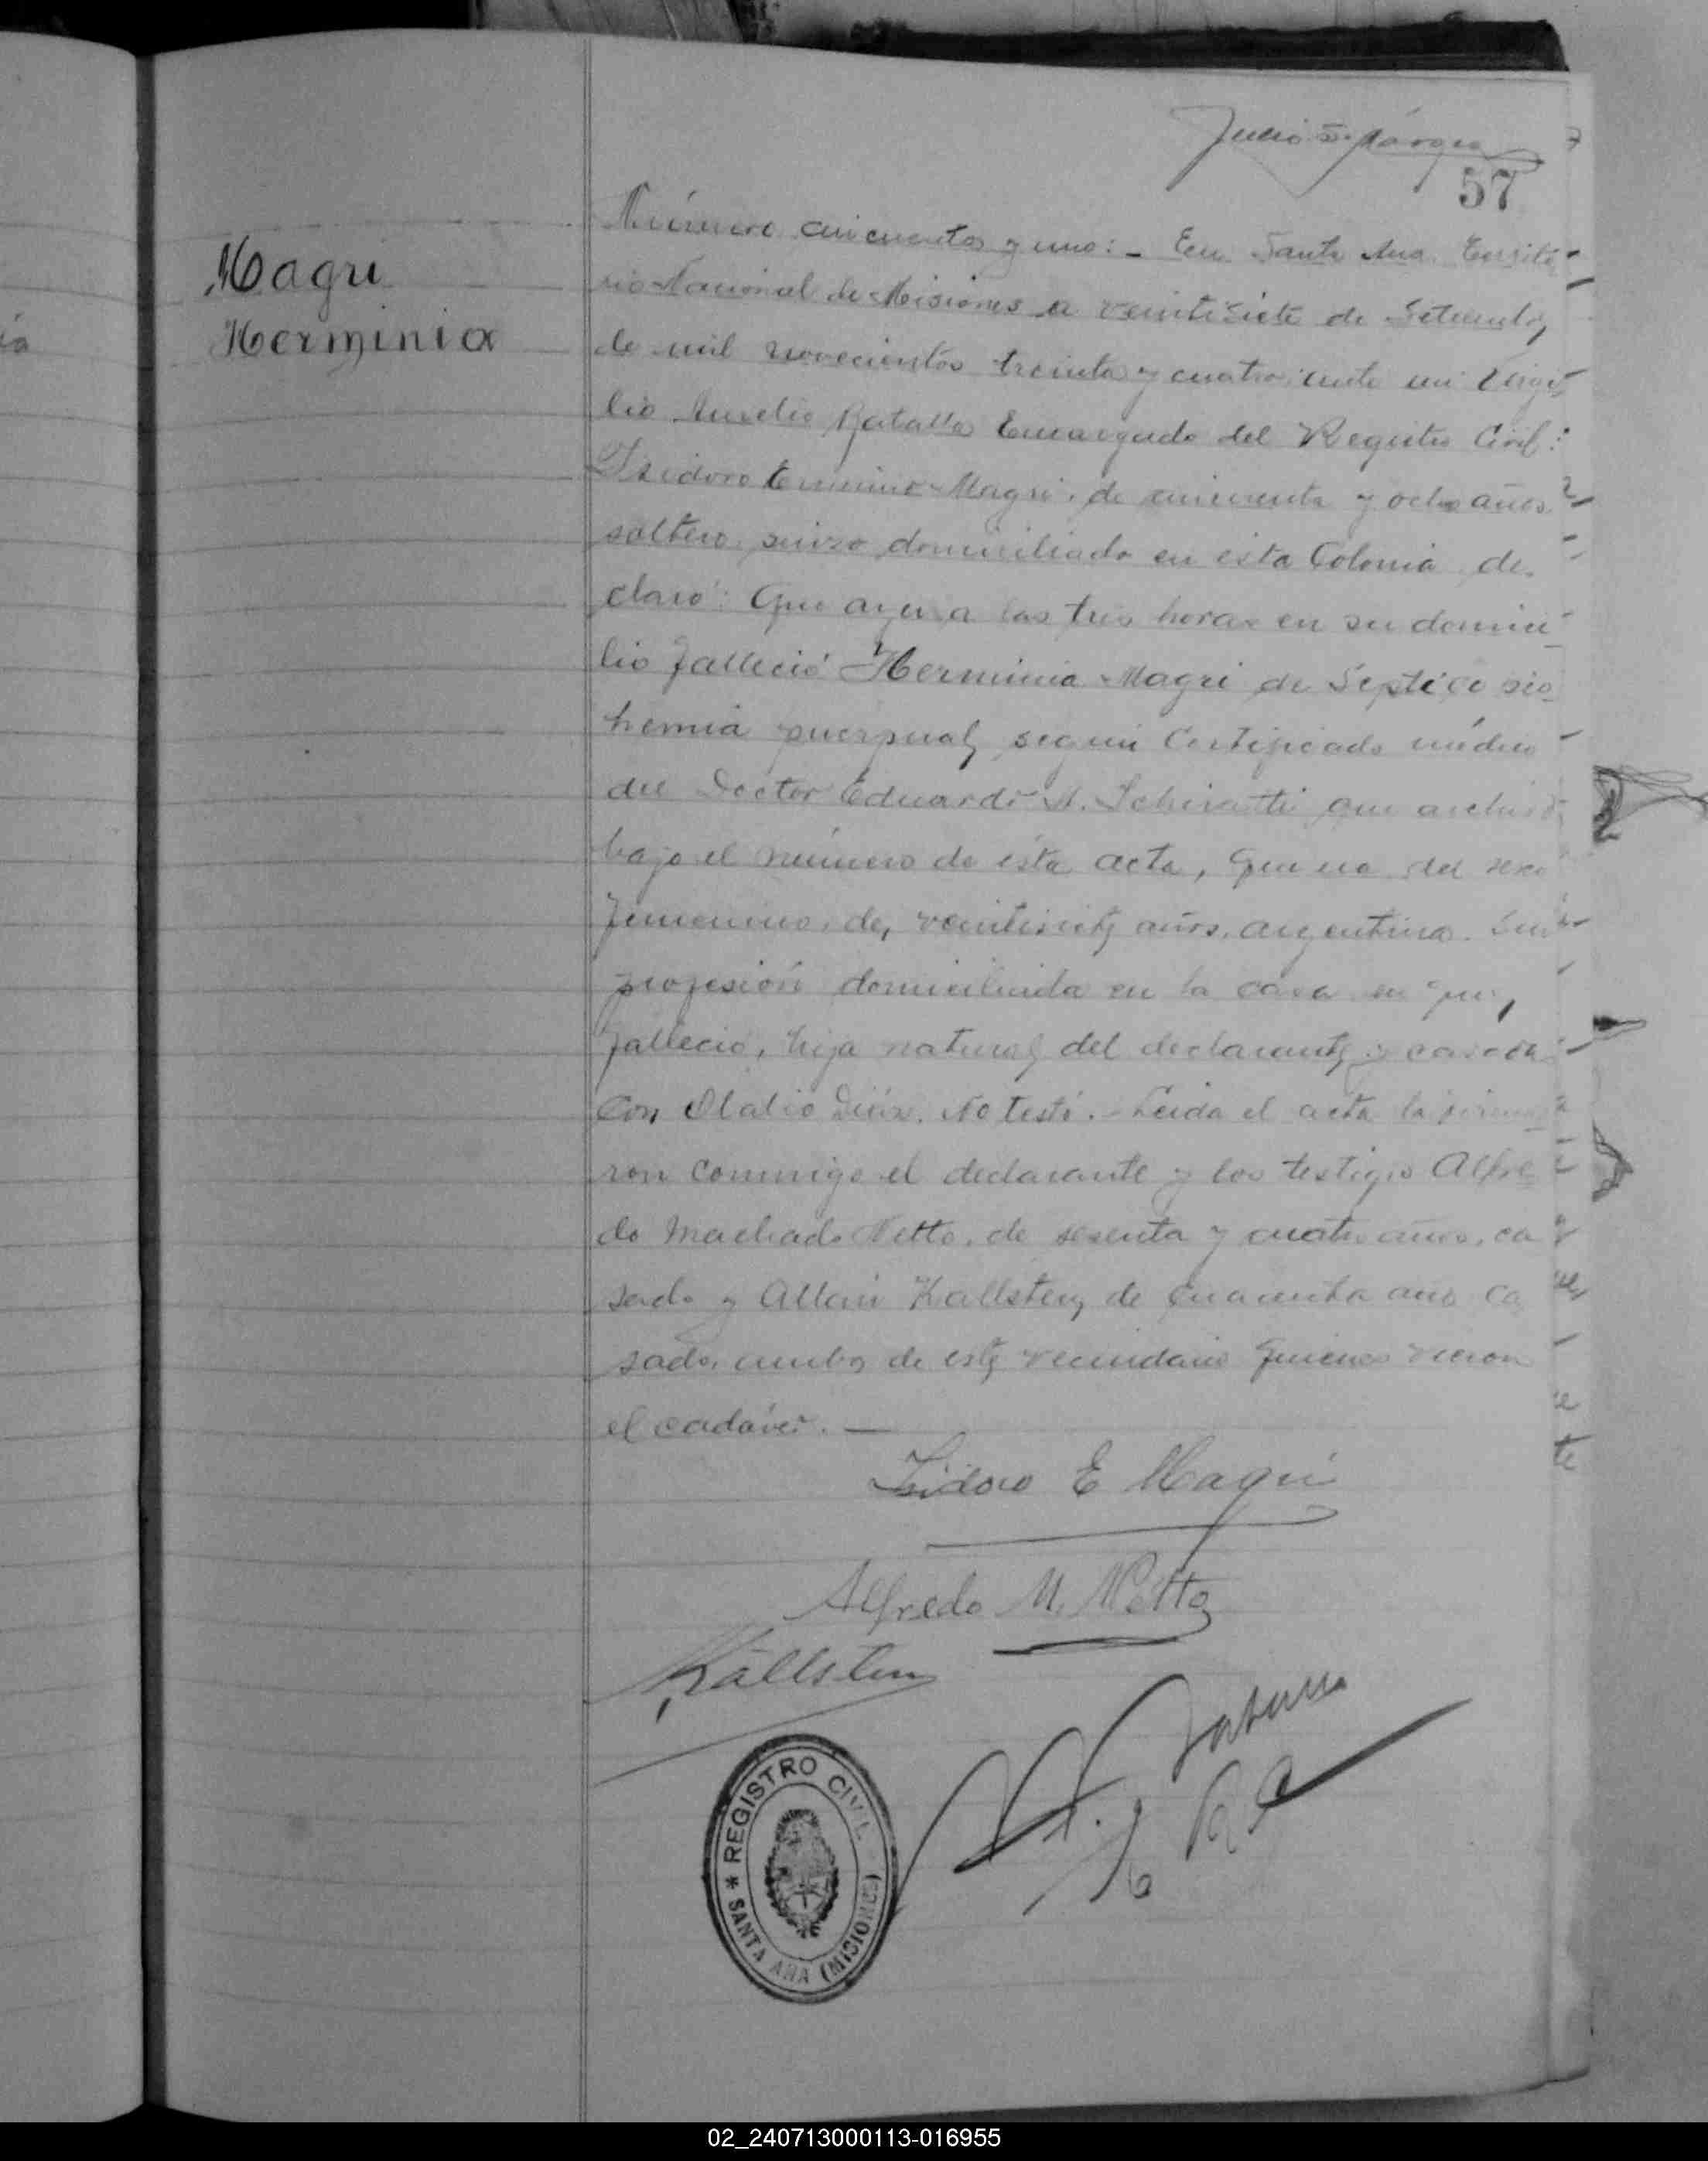 57
Magri
Herminia
Número cincuenta y uno: - En Santa Ana Territo
rio Nacional de Misiones a veintisiete de Setiembre
de mil novecientos treinta y cuatro, ante mi Virgi
lio Aurelio Batalla Encargado del Registro Civil:
Isidoro Erminio Magri, de cincuenta y ocho años
soltero, suizo domiciliado en esta Colonia de
claró: Que ayer a las tres horas en su domici
lio falleció Herminia Magri de Septico
hemia puerpual, según Certificado médico
del Doctor Eduardo A. que archivo
bajo el número de ésta acta, Que era del sexo
femenino, de veintisiete años, argentina. Sin
profesión domiciliada en la casa en que
falleció, hija natural del declarante y casada
Con Olalio Diáz. No testó. - Leida el acta la firma
ron conmigo el declarante y los testigos Alfre
do Machado Netto, de sesenta y cuatro años, ca
sado y Allan Kallsten, de cuarenta años ca
sado, ambos de este vecindario quienes vieron
el cadáver. —
Isidoro E Magri
Alfredo M. Netto
Källsten
REGISTRO CIVIL
* SANTA ANA (MISIONES)
02_240713000113-016955